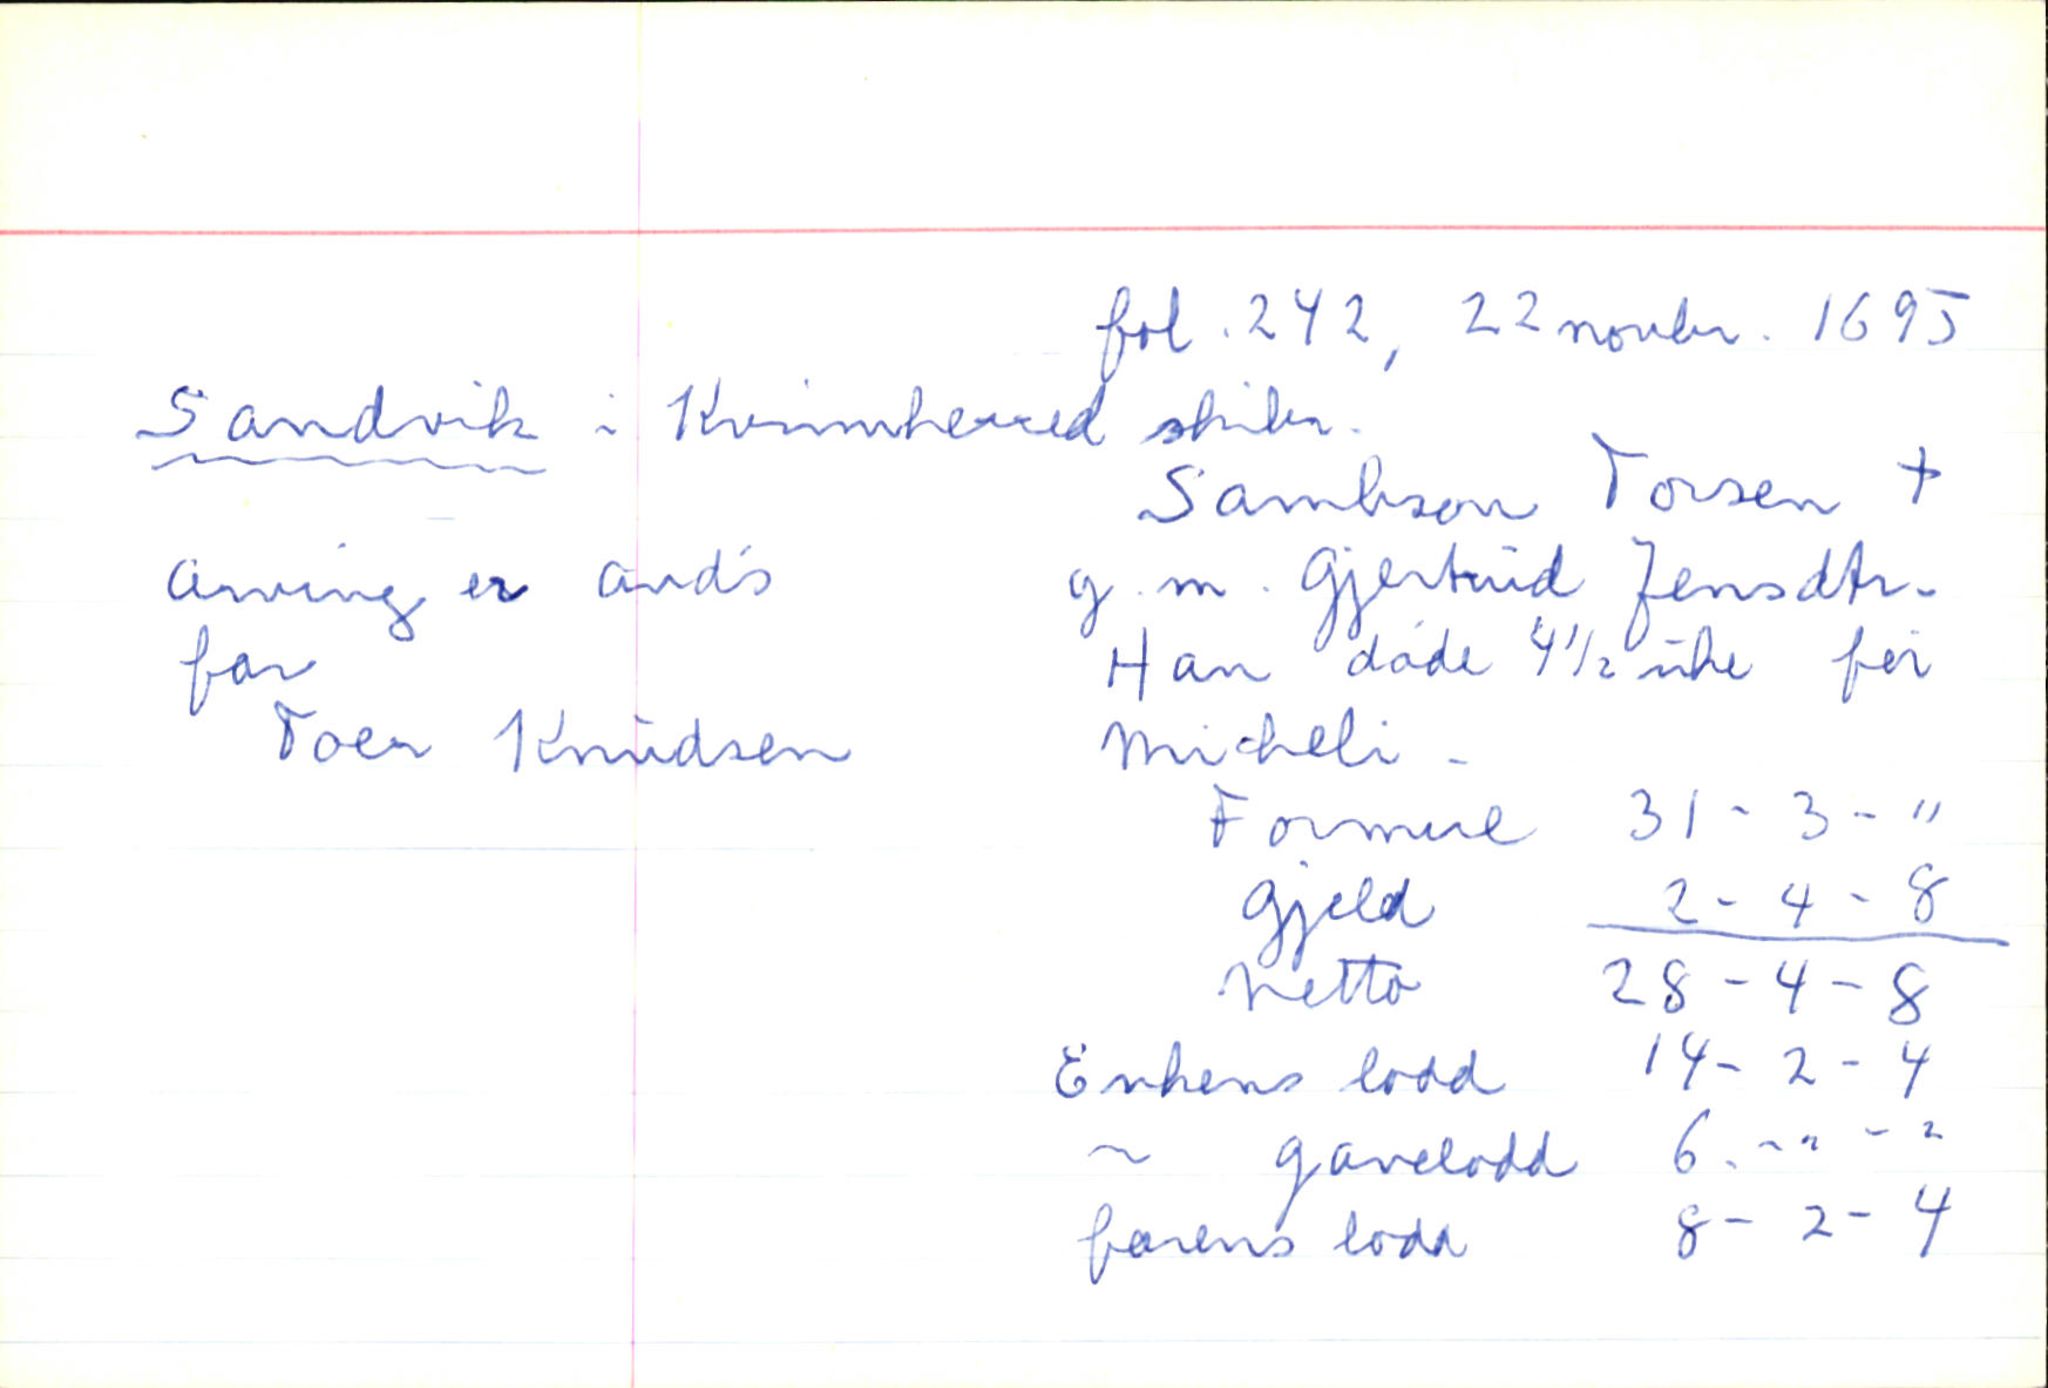 fol. 242, 22 novbr. 1695
Sandvik i Kvinnherred skibr.
Sambson Torsen +
arving er avd's
g. m. Gjertrud Jensdtr.
far
Han døde 4 1/2 uke før
Toer Knudsen
Micheli -
Formue 31 - 3 - "
Gjeld 2 - 4 - 8
Netto 28 - 4 - 8
Enkens lodd 14 - 2 - 4
~ gavelodd 6. - " - "
farens lodd 8 - 2 - 4